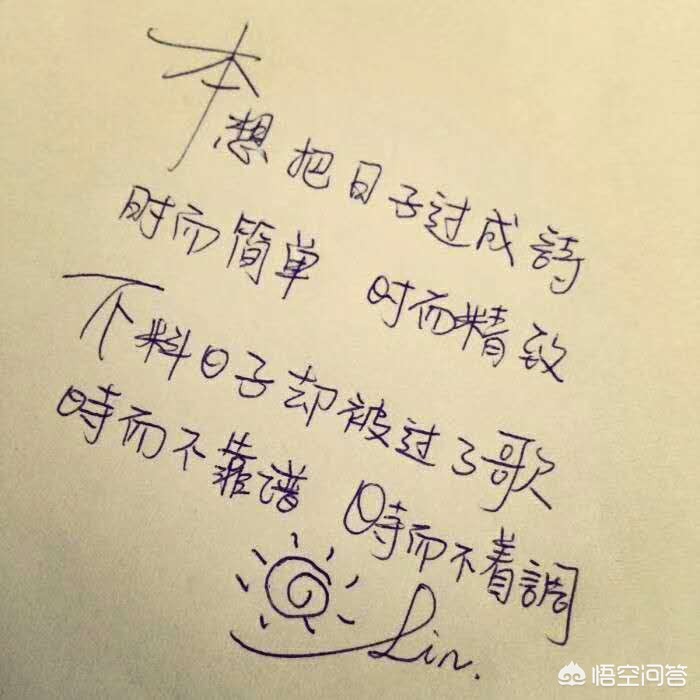 本想把日子过成詩
时而简单 时而精致
不料日子却被过了歌
時而不靠谱 時而不着調
Lin.
悟空问答